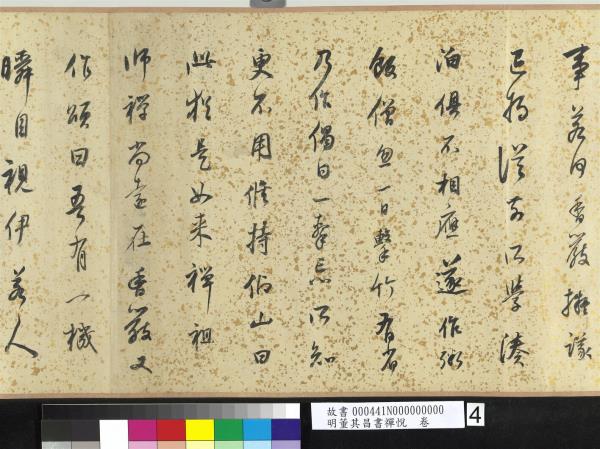 事若何香嚴擬議
已将從前所學湊
泊俱不相應遂作粥
飯僧忽一日擊竹有省
乃作偈曰一擊忘所知
更不用修持伯山曰
此猶是如来禪祖
師禪尚處在香嚴又
作頌曰吾有一機
瞬目視伊若人
故書000441N000000000
明董其昌書禪悅 卷
4